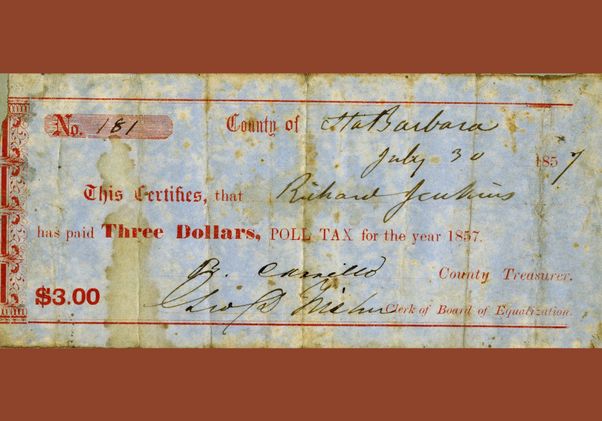 No. 181 County of Sta Barbara
July 30 1857
This Certifies, that Richard Jenkins
has paid Three Dollars, POLL TAX for the year 1857.
Carrillo County Treasurer.
$3.00
Geo D Fisher Clerk of Board of Equalization.